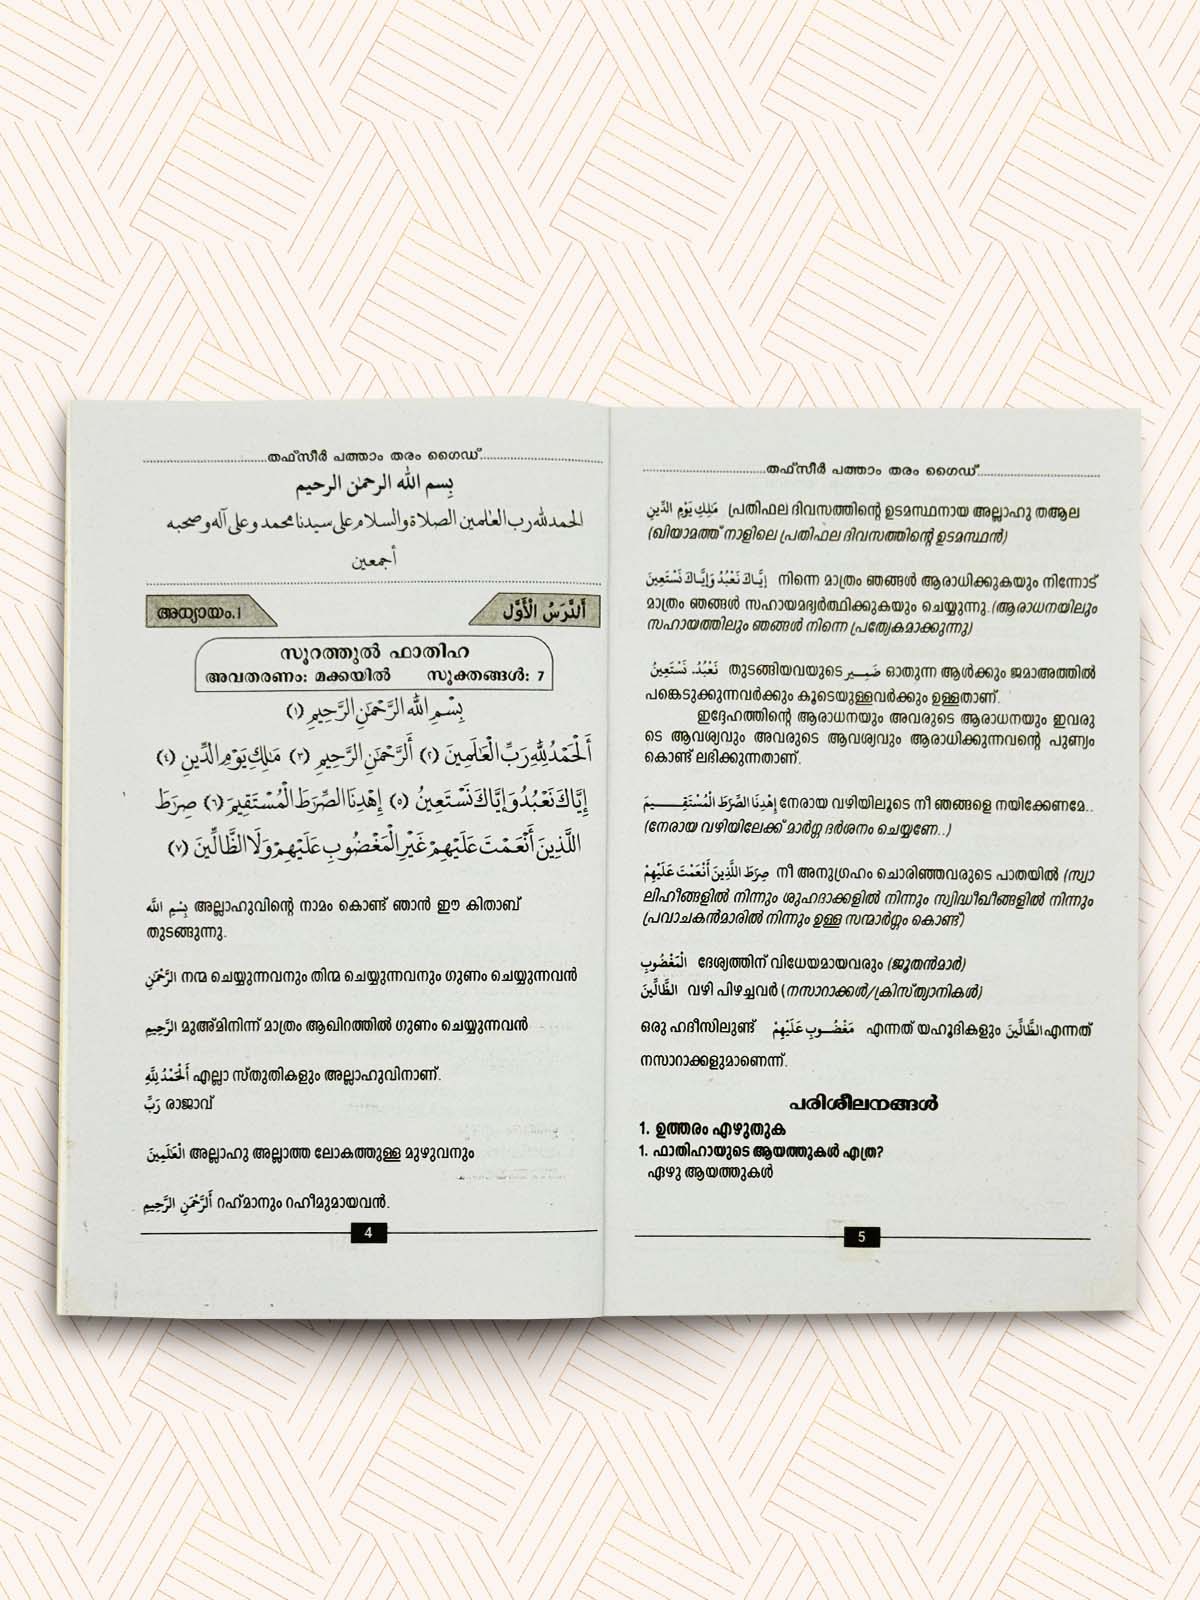 തഫ്സീർ പത്താം തരം ഗൈഡ്
بسم الله الرحمٰن الرحيم
الحمد لله رب العالمين الصلاة والسلام على سيدنا محمد وعلى آله وصحبه
أجمعين
അധ്യായം.1 اَلدَّرْسُ الْأَوَّل
സൂറത്തുൽ ഫാതിഹ
അവതരണം: മക്കയിൽ സൂക്തങ്ങൾ: 7
بِسْمِ اللهِ الرَّحْمٰنِ الرَّحِيمِ (١)
اَلْحَمْدُ لِلّٰهِ رَبِّ الْعَالَمِينَ (٢) اَلرَّحْمٰنِ الرَّحِيمِ (٣) مَلِكِ يَوْمِ الدِّينِ (٤)
إِيَّاكَ نَعْبُدُ وَإِيَّاكَ نَسْتَعِينُ (٥) إِهْدِنَا الصِّرَطَ الْمُسْتَقِيمَ (٦) صِرَطَ
اللَّذِينَ أَنْعَمْتَ عَلَيْهِمْ غَيْرِ الْمَغْضُوبِ عَلَيْهِمْ وَلَا الظَّالِّينَ (٧)
بِسْمِ اللهِ അല്ലാഹുവിന്റെ നാമം കൊണ്ട് ഞാൻ ഈ കിതാബ്
തുടങ്ങുന്നു.
الرَّحْمٰنِ നന്മ ചെയ്യുന്നവനും തിന്മ ചെയ്യുന്നവനും ഗുണം ചെയ്യുന്നവൻ
الرَّحِيمِ മുഅ്മിനിന് മാത്രം ആഖിറത്തിൽ ഗുണം ചെയ്യുന്നവൻ
اَلْحَمْدُ لِلّٰهِ എല്ലാ സ്തുതികളും അല്ലാഹുവിനാണ്.
رَبِّ രാജാവ്
الْعَلَمِينَ അല്ലാഹു അല്ലാത്ത ലോകത്തുള്ള മുഴുവനും
اَلرَّحْمٰنِ الرَّحِيمِ റഹ്മാനും റഹീമുമായവൻ.
4
തഫ്സീർ പത്താം തരം ഗൈഡ്
مَلِكِ يَوْمِ الدِّينِ പ്രതിഫല ദിവസത്തിന്റെ ഉടമസ്ഥനായ അല്ലാഹു തആല
(ഖിയാമത്ത് നാളിലെ പ്രതിഫല ദിവസത്തിന്റെ ഉടമസ്ഥൻ)
إِيَّاكَ نَعْبُدُ وَإِيَّاكَ نَسْتَعِينَ നിന്നെ മാത്രം ഞങ്ങൾ ആരാധിക്കുകയും നിന്നോട്
മാത്രം ഞങ്ങൾ സഹായമഭ്യർത്ഥിക്കുകയും ചെയ്യുന്നു. (ആരാധനയിലും
സഹായത്തിലും ഞങ്ങൾ നിന്നെ പ്രത്യേകമാക്കുന്നു)
نَعْبُدُ. نَسْتَعِينُ തുടങ്ങിയവയുടെ ضَمِير ഓതുന്ന ആൾക്കും ജമാഅത്തിൽ
പങ്കെടുക്കുന്നവർക്കും കൂടെയുള്ളവർക്കും ഉള്ളതാണ്.
ഇദ്ദേഹത്തിന്റെ ആരാധനയും അവരുടെ ആരാധനയും ഇവരു
ടെ ആവശ്യവും അവരുടെ ആവശ്യവും ആരാധിക്കുന്നവന്റെ പുണ്യം
കൊണ്ട് ലഭിക്കുന്നതാണ്.
إِهْدِنَا الصِّرَطَ الْمُسْتَقِيمَ നേരായ വഴിയിലൂടെ നീ ഞങ്ങളെ നയിക്കേണമേ..
(നേരായ വഴിയിലേക്ക് മാർഗ്ഗ ദർശനം ചെയ്യണേ..)
صِرَطَ اللَّذِينَ أَنْعَمْتَ عَلَيْهِمْ നീ അനുഗ്രഹം ചൊരിഞ്ഞവരുടെ പാതയിൽ (സ്വാ
ലിഹീങ്ങളിൽ നിന്നും ശുഹദാക്കളിൽ നിന്നും സ്വിദ്ധീഖീങ്ങളിൽ നിന്നും
പ്രവാചകൻമാരിൽ നിന്നും ഉള്ള സന്മാർഗ്ഗം കൊണ്ട്)
الْمَغْضُوبِ ദേശ്യത്തിന് വിധേയമായവരും (ജൂതൻമാർ)
الظَّالِّينَ വഴി പിഴച്ചവർ (നസാറാക്കൾ/ക്രിസ്ത്യാനികൾ)
ഒരു ഹദീസിലുണ്ട് مَغْضُوبِ عَلَيْهِمْ എന്നത് യഹൂദികളും الظَّالِّينَ എന്നത്
നസാറാക്കളുമാണെന്ന്.
പരിശീലനങ്ങൾ
1. ഉത്തരം എഴുതുക
1. ഫാതിഹായുടെ ആയത്തുകൾ എത്ര?
ഏഴു ആയത്തുകൾ
5